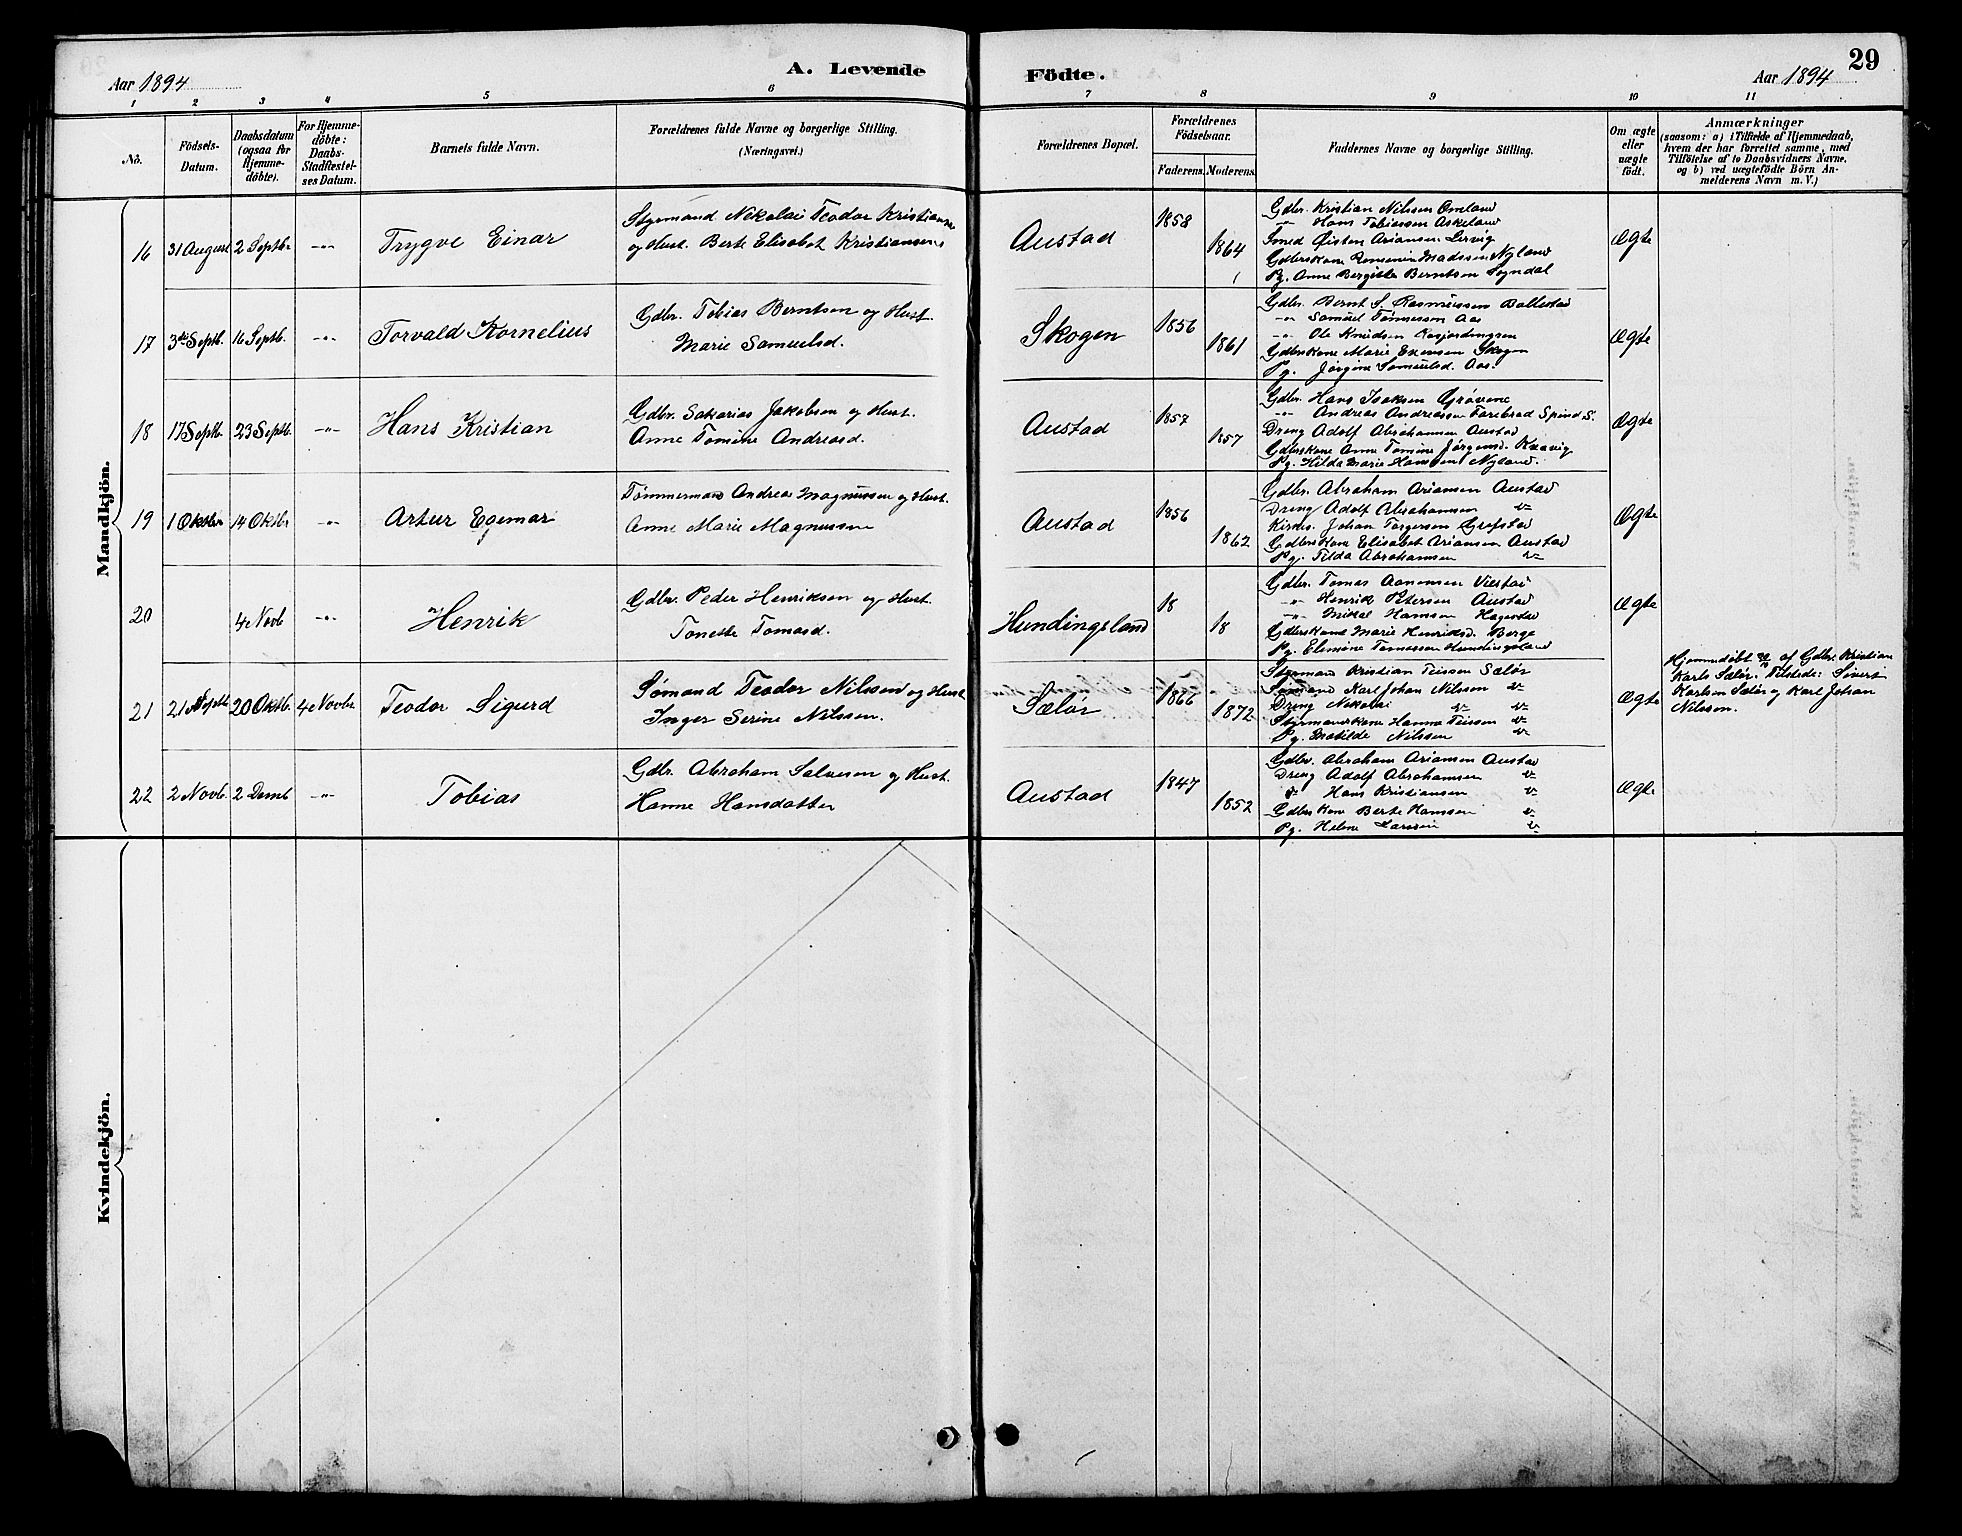 29
A. Levende Födte.
Aar 1894
Aar 1894
1 2 3 4 5 6 7 8 9 10 11
No.
Födsels-Datum.
Daabsdatum (ogsaa for Hjemme-döbte).
For Hjemme-döbte: Daabs-Stadfæstel-ses Datum.
Barnets fulde Navn.
Forældrenes fulde Navne og borgerlige Stilling.
(Næringsvei.)
Forældrenes Bopæl.
Forældrenes Födselsaar.
Faderens. Moderens.
Faddernes Navne og borgerlige Stilling.
Om ægte eller uægte födt.
Anmærkninger
(saasom: a) i Tilfælde af Hjemmedaab,
hvem der har forrettet samme, med
Tilföielse af to Daabsvidners Navne,
og b) ved uægtefödte Börn An-
melderens Navn m. V.)
Mandkjön.
16 31 August 2 Septbr. -"- Trygve Einar
Styrmand Nikolai Teodor Kristiansen
og Hust. Berte Elisabet Kristiansen
Austad 1858 1864
Gdbr. Kristian Nilssen Omland
-"- Hans Tobiassen Askeland
Smed Øisten Ariansen Lervig
Gdberskone Madssen Nyland
Pg. Anne Bergitte Berntsen Sogndal
Ægte
17 3die Septb. 16 Septb. -"- Torvald Kornelius
Gdbr. Tobias Berntsen og Hust.
Marie Samuelsd.
Skogen 1856 1861
Gdbr. Bernt S. Rasmussen Ballestad
-"- Samuel Tønnessen Aas
-"- Ole Knudsen
Gdberskone Marie Skogen
Pg. Jørgine Samuelsd. Aas.
Ægte
18 17 Septb. 23 Septb. -"- Hans Kristian
Gdbr. Sakarias Jakobsen og Hust.
Anne Tomine Andreasd.
Austad 1857 1857
Gdbr. Hans Isaksen Grøvene
-"- Andreas Andreassen Farebrod Spind S.
Dreng Adolf Abrahamsen Austad
Gdberskone Anne Tomine Jørgensd. Kvavig
Pg. Hilda Marie Hanssen Nyland.
Ægte
19 1 Oktbr 14 Oktbr -"- Artur Egemar
Tømmermand Andreas Magnussen og Hust.
Anne Marie Magnussen
Austad 1856 1862
Gdbr. Abraham Ariansen Austad
Dreng Adolf Abrahamsen "
Kirkes. Johan Torgersen Grefstad
Gdberskone Elisabet Ariansen Austad
Pg. Tilda Abrahamsen "
Ægte
20 4 Novb -"- Henrik
Gdbr. Peder Henriksen og Hust.
Tonette Tomasd.
Hundingsland 18 18
Gdbr. Tomas Aanensen Viestad
-"- Henrik Petersen Austad
-"- Mikal Hansen Hagestad
Gdberskone Marie Henriksd. Berge
Pg. Elimine Tomassen Hundingsland
Ægte
21 21 Septb. 20 Oktbr. 4 Novbr. Teodor Sigurd
Sømand Teodor Nilssen og Hust
Inger Serine Nilssen.
Sælør 1866 1872
Styrmand Kristian Teissen Sælør
Sømand Karl Johan Nilssen "
Dreng Nikolai " "
Styrmandskone Hanna Teissen "
Pg. Matilde Nilssen "
Ægte
Hjemmedøbt af Gdbr. Kristian
Karls. Sælør. Tilstede: Sivert
Karlsen Sælør og Karl Johan
Nilssen.
22 2 Novb. 2 Decmb -"- Tobias
Gdbr. Abraham Salvesen og Hust.
Hanne Hansdatter
Austad 1847 1852
Gdbr. Abraham Ariansen Austad
Dreng Adolf Abrahamsen "
" Hans Kristiansen "
Gdberskone Berte Hanssen "
Pg. Helene Larssen "
Ægte
Kvindekjön.